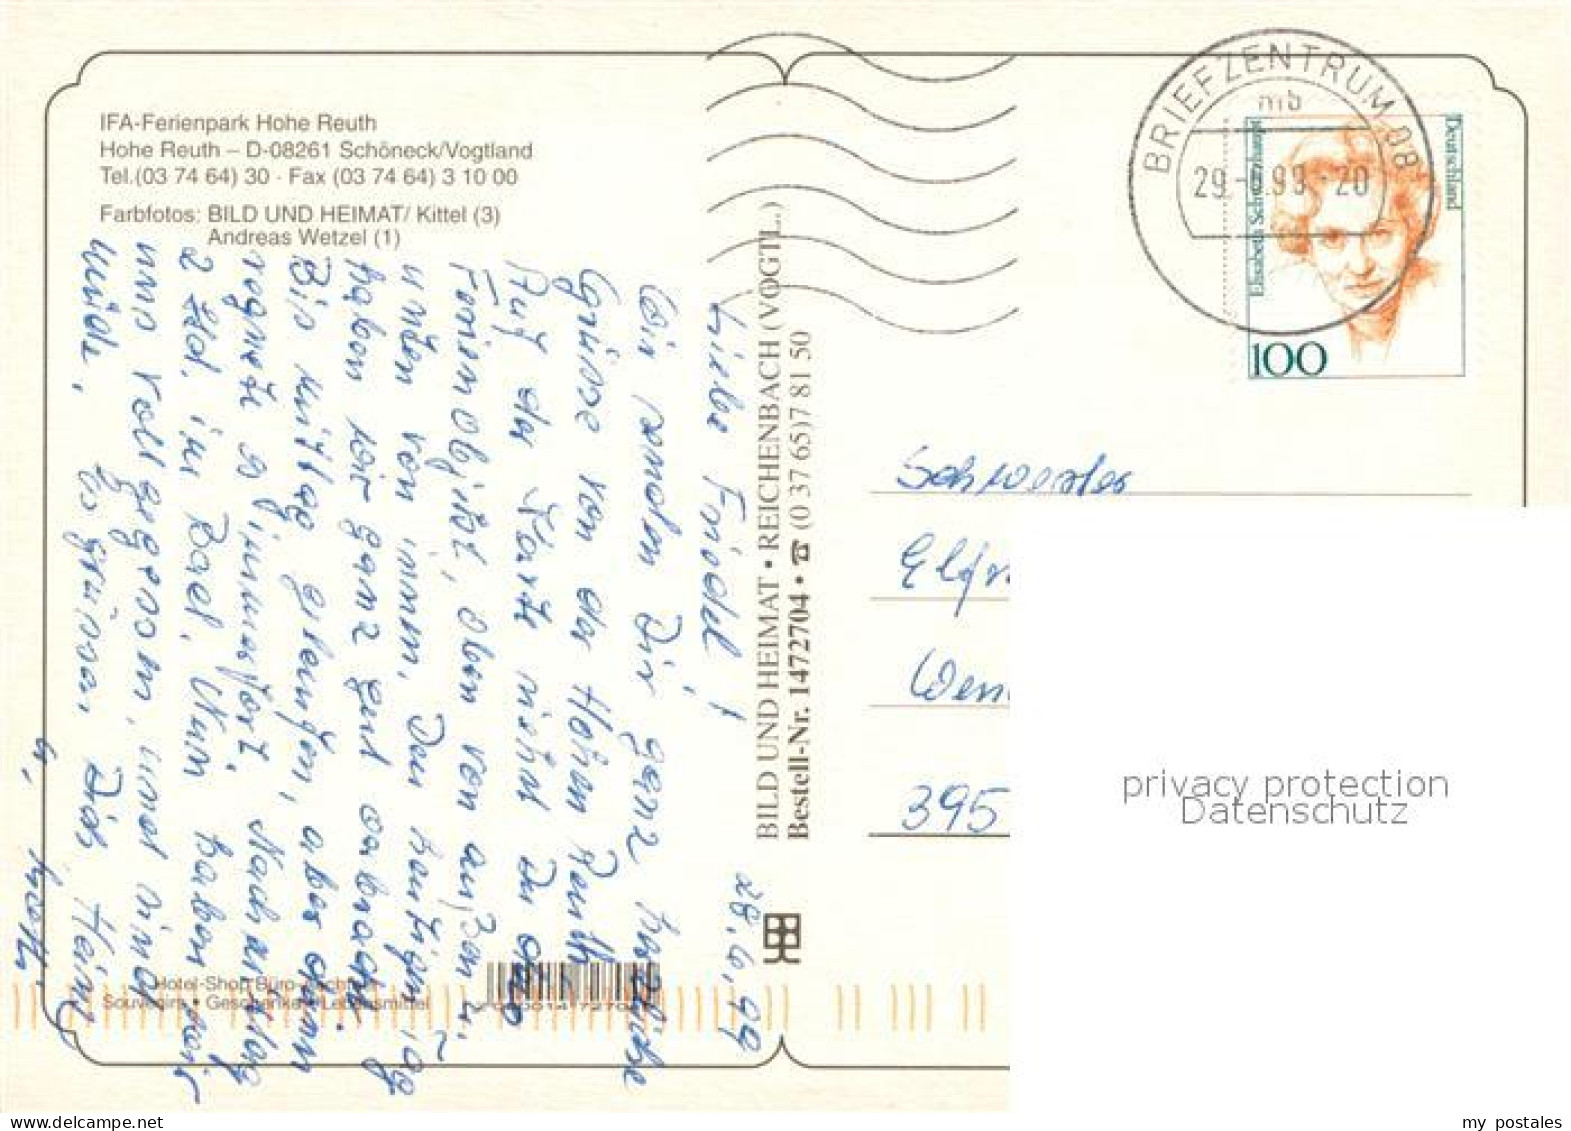 IFA-Ferienpark Hohe Reuth
Hohe Reuth – D-08261 Schöneck/Vogtland
Tel.(03 74 64) 30 · Fax (03 74 64) 3 10 00
Farbfotos: BILD UND HEIMAT/ Kittel (3)
Andreas Wetzel (1)
28.6.99
Liebe Friedel!
Wir senden Dir ganz herzliche
Grüsse von der Hohen Reuth.
Auf der Karte siehst Du das
Ferienobjekt, oben von außen u.
unten von innen. Den heutigen Tag
haben wir ganz gut verbracht.
Bis mittag gelaufen, aber dann
regnete es immerfort. Nachmittag
2 Std. im Bad. Nun haben wir
uns voll gegessen, und sind
müde. Es grüssen Dich Heinz
u.
BILD UND HEIMAT • REICHENBACH (VOGTL.)
Bestell-Nr. 1472704 • ☎ (0 37 65) 7 81 50
Hotel-Shop
Souvenirs • Geschenke • Lebensmittel
BRIEFZENTRUM 08
mb
29 99-20
Deutschland
Elisabeth Schwarzhaupt
100
Schwester
Elfr
Wen
395
privacy protection
Datenschutz
my_postales